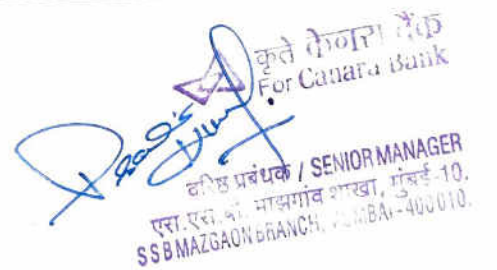 कृते केनरा बैंक
For Canara Bank
वरिष्ठ प्रबंधक / SENIOR MANAGER
एस. एस. बी. माझगांव शाखा, मुंबई-10.
SSB MAZGAON BRANCH, MUMBAI-400010.